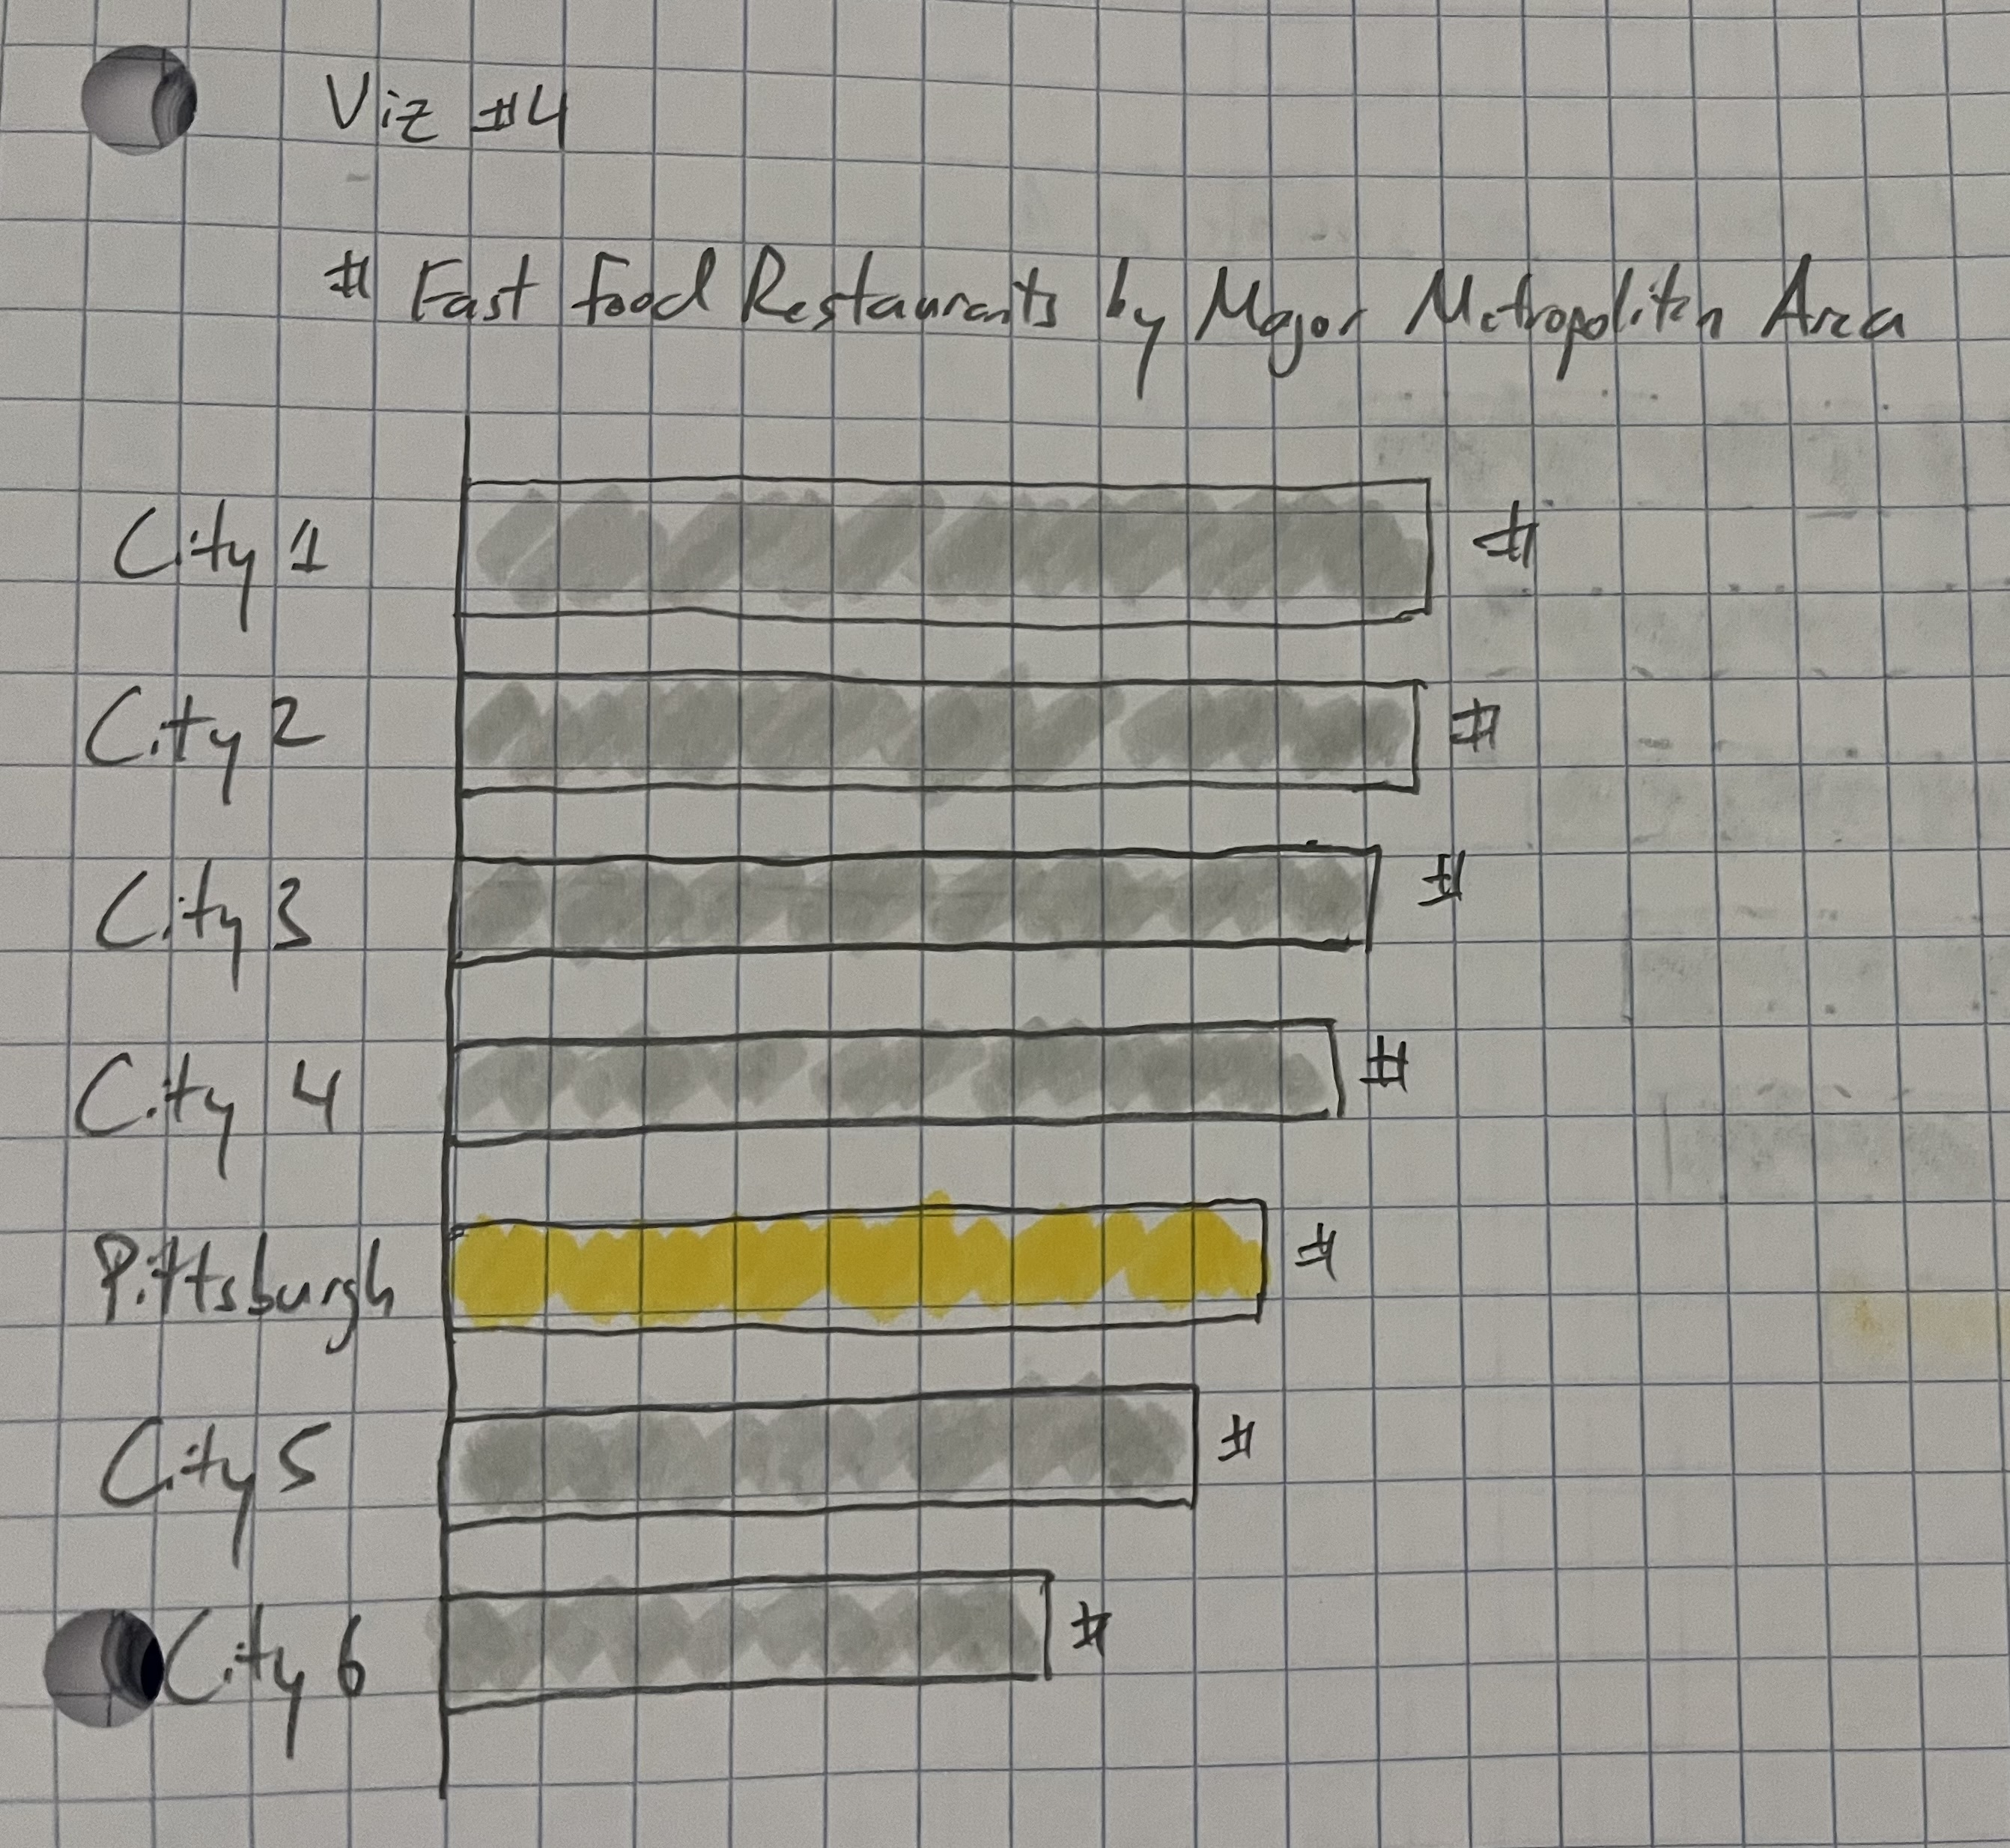 Viz #4
# Fast Food Restaurants by Major Metropolitan Area
City 1 #
City 2 #
City 3 #
City 4 #
Pittsburgh #
City 5 #
City 6 #